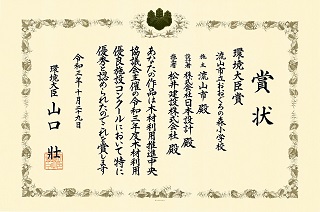 賞状
環境大臣賞
流山市立おおぐろの森小学校
施主 流山市 殿
設計者 株式会社日本設計 殿
施工者 松井建設株式会社 殿
あなたの作品は木材利用推進中央
協議会主催の令和三年度木材利用
優良施設コンクールにおいて特に
優秀と認められたのでこれを賞します
令和三年十月二十九日
環境大臣 山口 壯